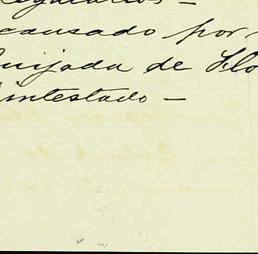 causado por
Quijada de Flo
intestado —